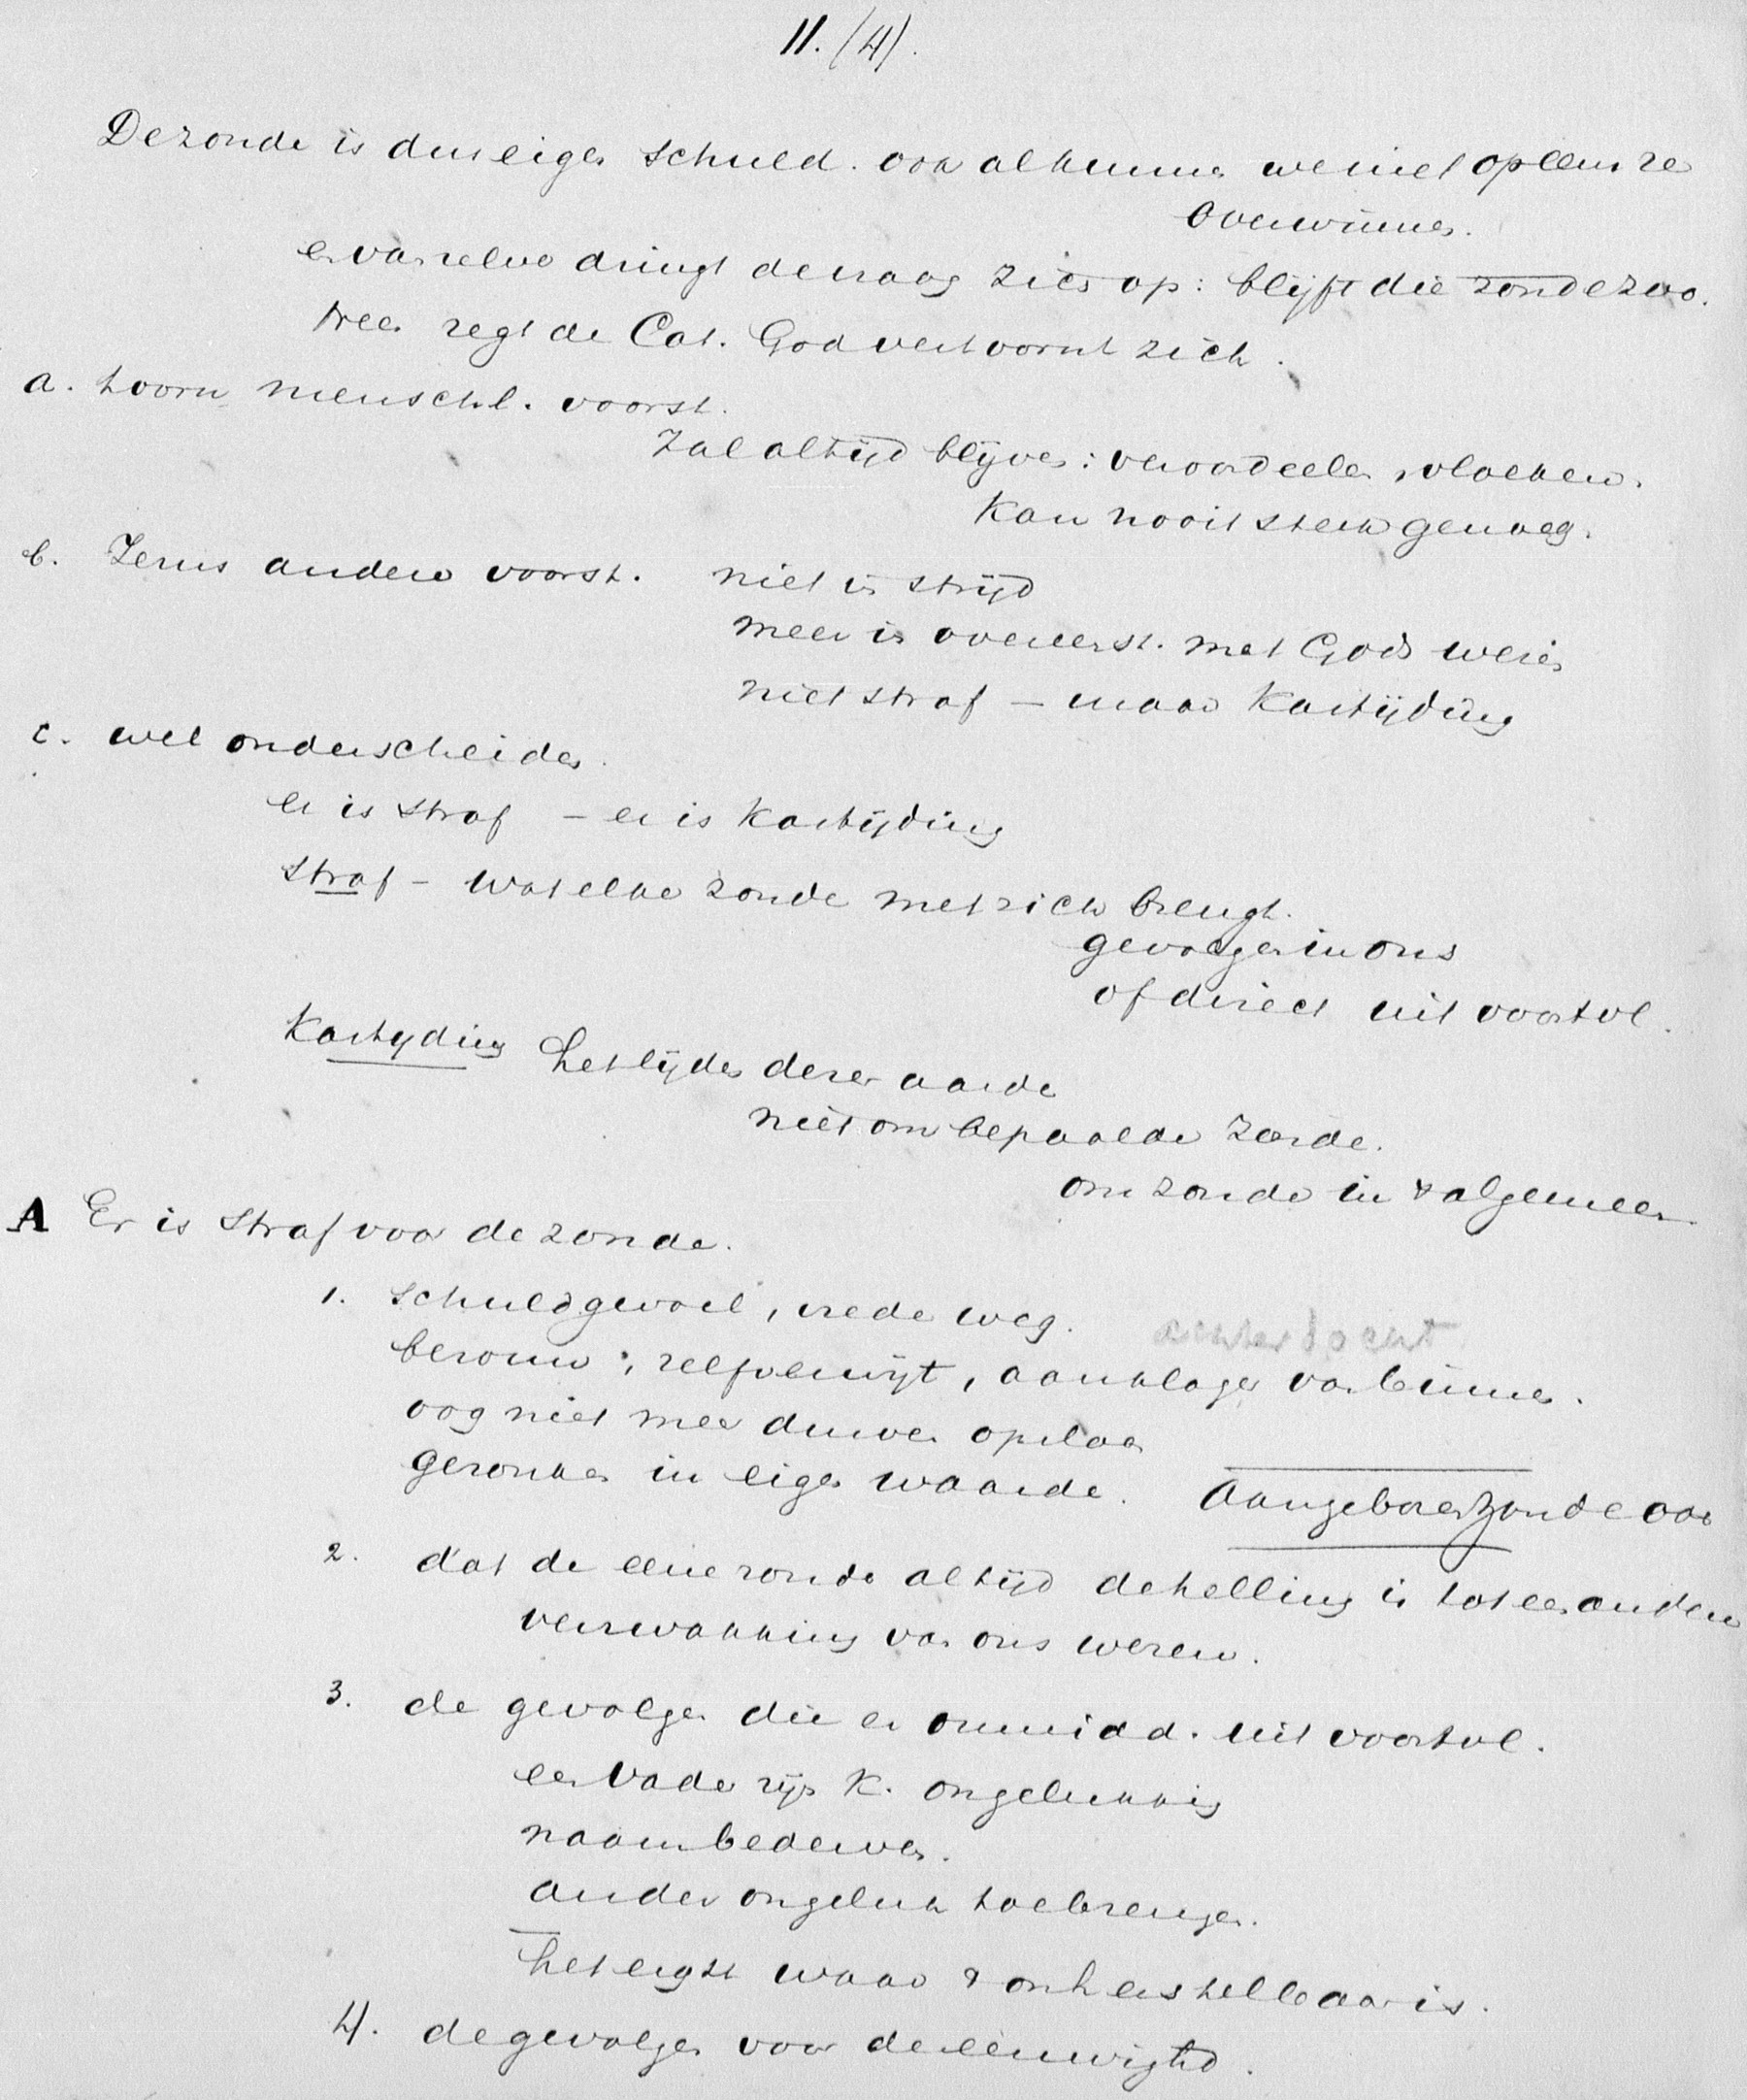 11. (4).
De zonde is dus eigen schuld. ook al kunnen we niet opeens ze
overwinnen.
en vanzelve dringt de vraag zich op: blijft die zonde zoo.
Nee zegt de Cat. God vertoornt zich.
a. toorn menschl. voorst.
Zal altijd blijven: veroordeelen, vloeken.
Kan nooit sterk genoeg.
b. Jezus andere voorst. niet in strijd
meer in overeenst. met Gods wezen
niet straf – maar Kastijding
c. wel onderscheiden.
er is straf – er is Kastijding
straf – wat elke zonde met zich brengt.
gevolgen in ons
of direct uit voortvl.
Kastijding het lijden dezer aarde
niet om bepaalde zonde.
om zonde in 't algemeen.
A Er is straf voor de zonde.
1. schuldgevoel, vrede weg.
achterdocht
berouw, zelfverwijt, aanklagen van binnen.
oog niet meer durven opslaan
gezonken in eigen waarde. Aangeboren zonde ook
2. dat de eene zonde altijd de helling is tot een andere
verzwakking van ons wezen.
3. de gevolgen die er onmidd. uit voortvl.
een vader zijn K. ongelukkig
naam bederven.
ander ongeluk toebrengen.
het ergst waar 't onherstelbaar is.
4. de gevolgen voor de eeuwighd.